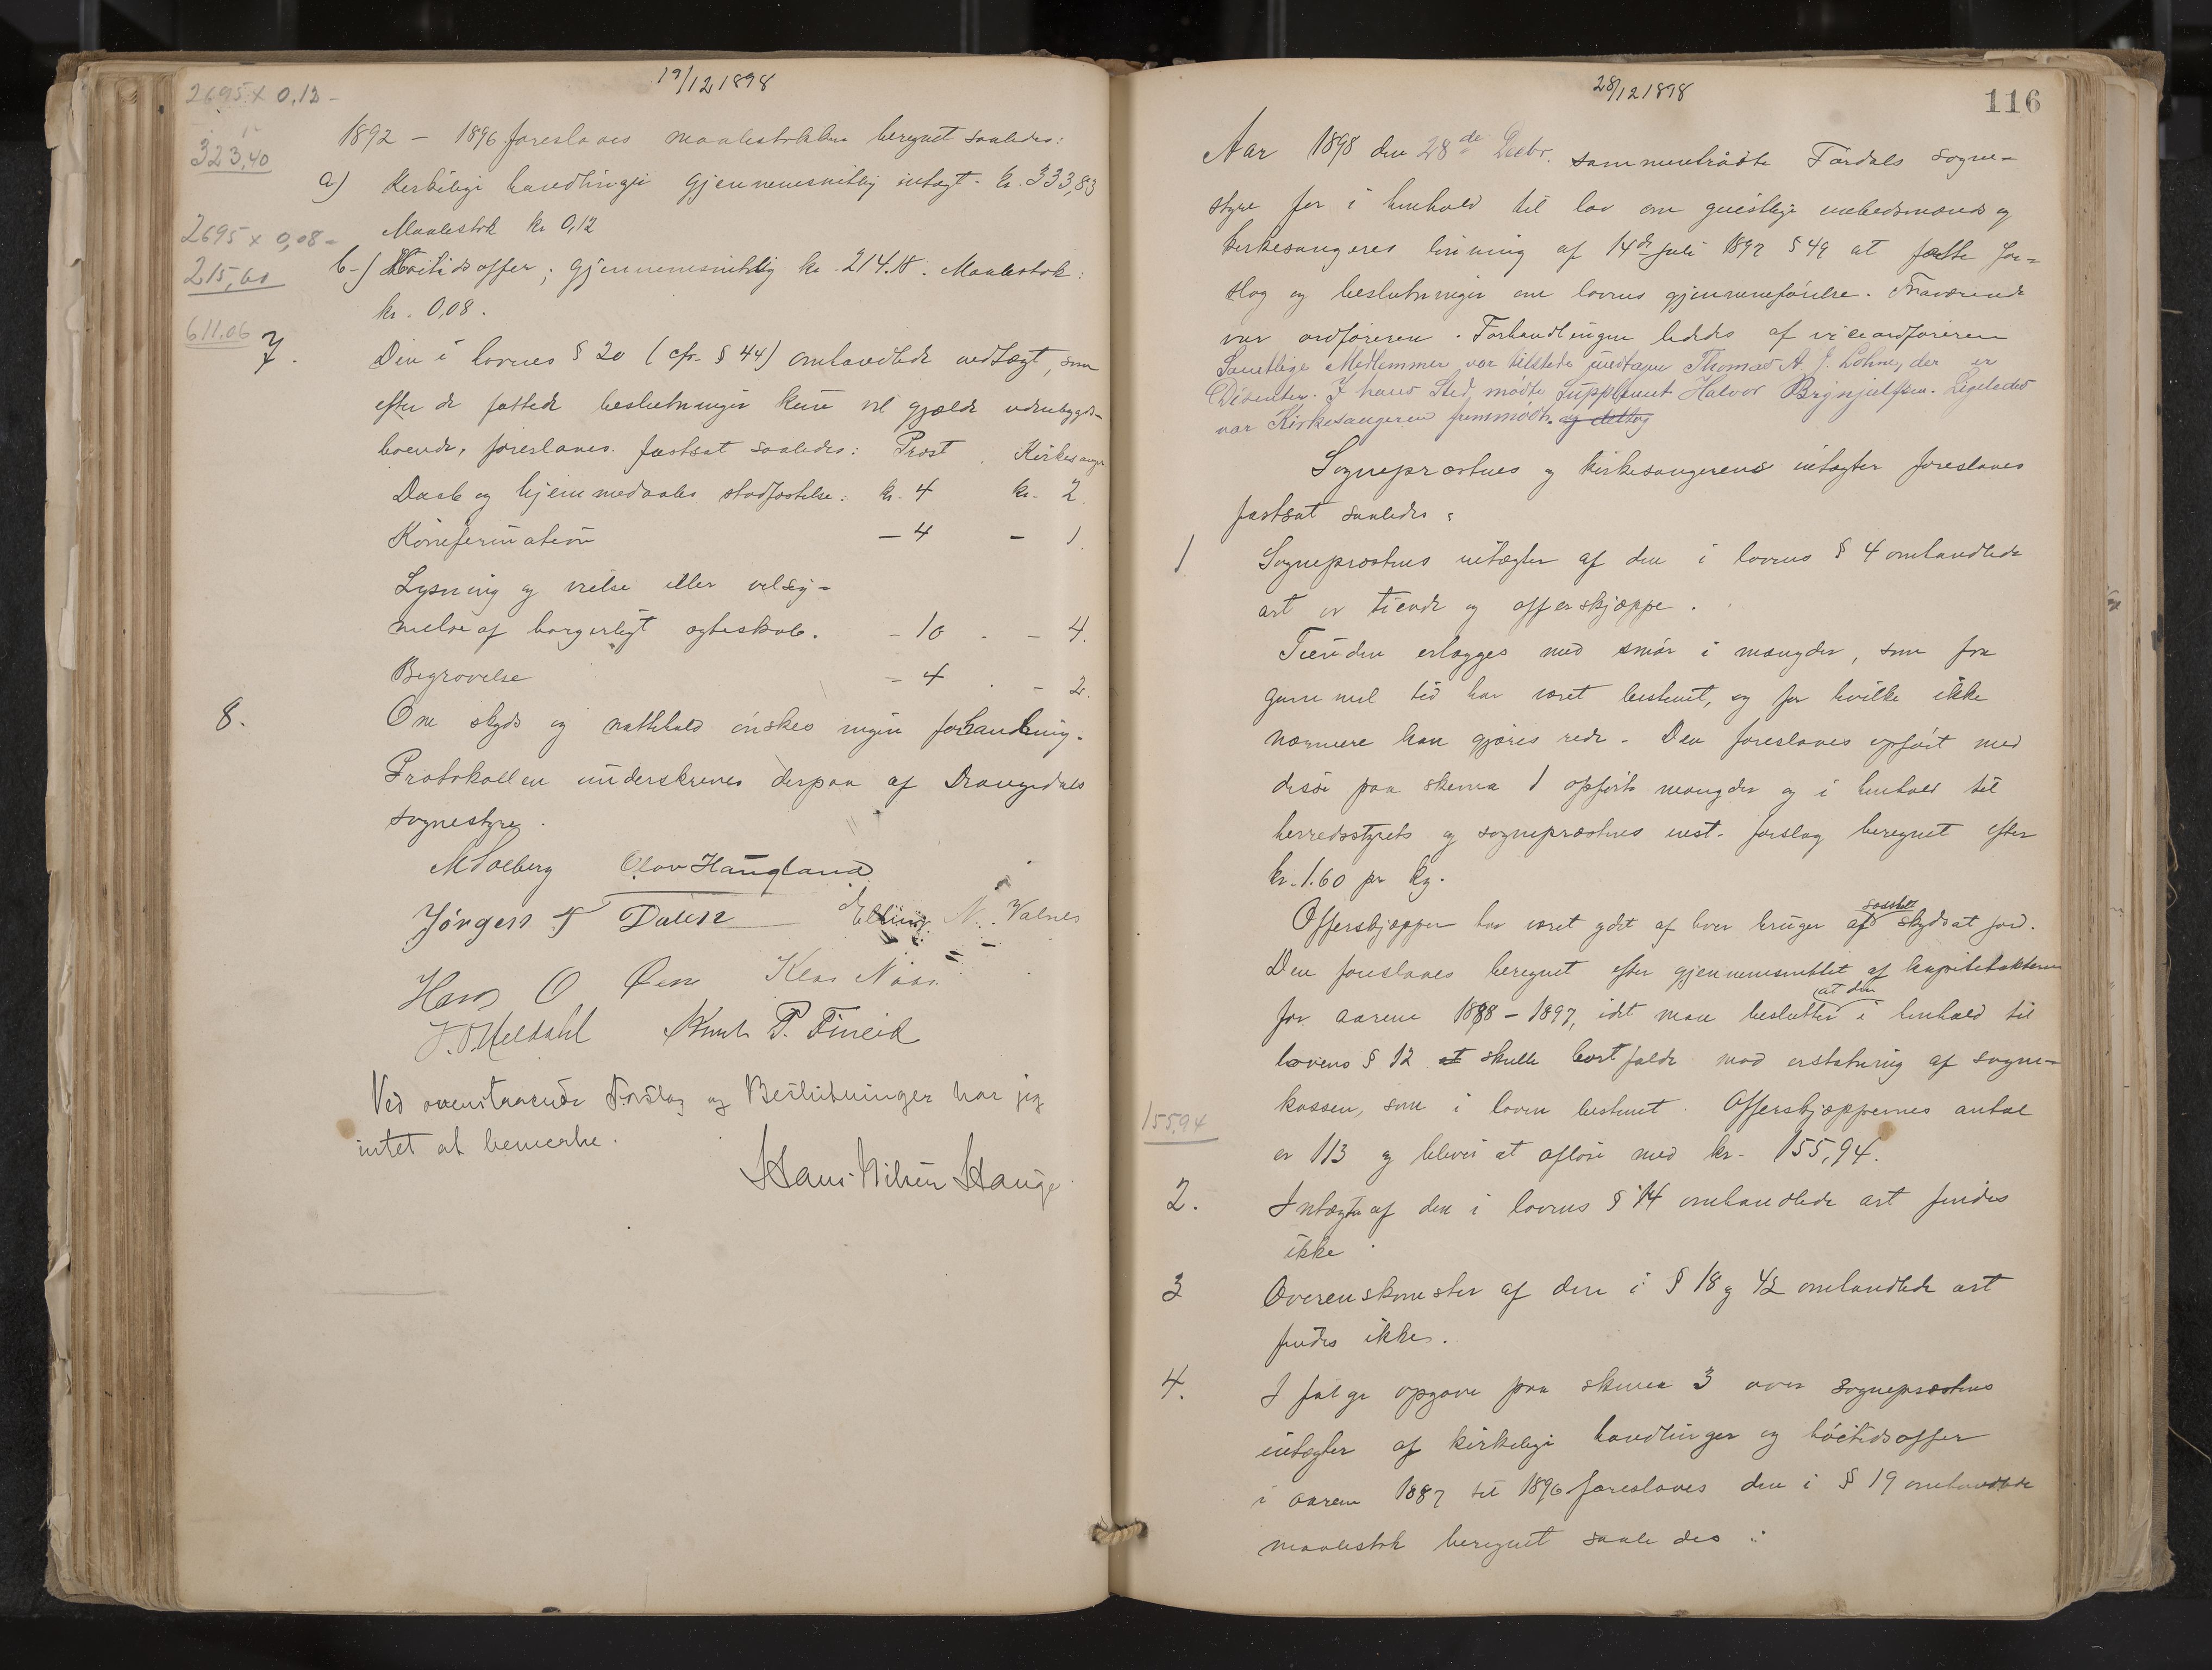 19/12 1898
2695 x 0,12 -
323,40
1892 – 1896 foreslaaes maalestokken beregnet saaledes:
a) Kirkelige handlinger gjennemsnitlig intægt. kr. 333,83
Maalestok kr 0,12
2695 x 0,08 -
215,60
b-) Høitidsoffer; gjennemsnitlig kr. 214.18. Maalestok:
kr. 0,08.
611.06
7. Den i lovens § 20 (cfr. § 44) omhandlede vedtægt, som
efter de fattede beslutninger kun vil gjælde udenbygds-
boende, foreslaaes fastsat saaledes: Prest. Kirkesanger
Daab og hjemmedaabs stadfæstelse: kr. 4 kr. 2.
Konfirmation – 4 – 1.
Lysning og vielse eller velsig-
nelse af borgerligt ægteskab. – 10 . – 4.
Begravelse – 4 . – 2.
8. Om skyds og nattehold ønskes ingen forhandling.
Protokollen underskrives derpaa af Drangedals
sognestyre.
M Solberg Olav Haugland
Jørgen J Dalen Elling N. Valnes
Hans O Øine Klas Næss
J. O. Meldahl Knut P. Fineid
Ved ovenstaaende Forslag og Beslutninger har jeg
intet at bemerke.
Hans Nilsen Hauge
28/12 1898
116
Aar 1898 den 28de Decbr. sammentraadte Tørdals sogne-
styre for i henhold til lov om geistlige embedsmænds og
kirkesangeres lønning af 14de juli 1897 § 49 at fatte for-
slag og beslutninger om lovens gjennemførelse. Fraværende
var ordføreren. Forhandlingen lededes af viceordføreren
Samtlige Medlemmer var tilstede undtagen Thomas A. J. Lohne, der er
Dissenter. I hans Sted mødte Suppleant Halvor Brynjulfsen. Ligeledes
var Kirkesangeren fremmødt. og deltog
Sogneprestens og kirkesangerens intægter foreslaaes
fastsat saaledes:
1 Sogneprestens intægter af den i lovens § 4 omhandlede
art er tiende og offerskjæppe.
Tienden erlægges med smør i mængder, som fra
gammel tid har været bestemt, og for hvilke ikke
nærmere kan gjøres rede. Den foreslaaes opført med
disse paa skema 1 opførte mængder og i henhold til
herredsstyrets og sogneprestens enst. forslag beregnet efter
kr. 1.60 pr kg.
Offerskjæppen har været ydet af hver bruger af særskilt skyldsat jord.
Den foreslaaes beregnet efter gjennemsnittet af kapitelstaksten
for aarene 1888 – 1897, idet man beslutter at den i henhold til
lovens § 12 at skulle bortfalde mod erstatning af sogne-
155.94
kassen, som i loven bestemt. Offerskjæppernes antal
er 113 og bliver at afløse med kr. 155,94.
2. Intægter af den i lovens § 14 omhandlede art findes
ikke
3 Overenskomster af den i § 18 og 42 omhandlede art
findes ikke.
4. I følge opgave paa skema 3 over sogneprestens
intægter af kirkelige handlinger og høitidsoffer
i aarene 1887 til 1896 foreslaaes den i § 19 omhandlede
maalestok beregnet saaledes: